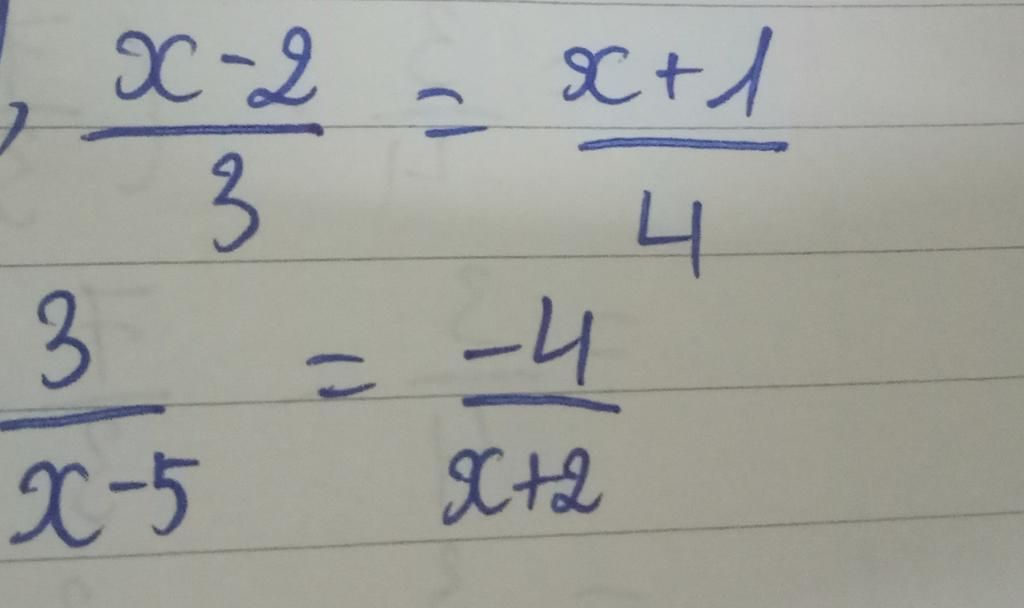 , x-2/3 = x+1/4
3/x-5 = -4/x+2